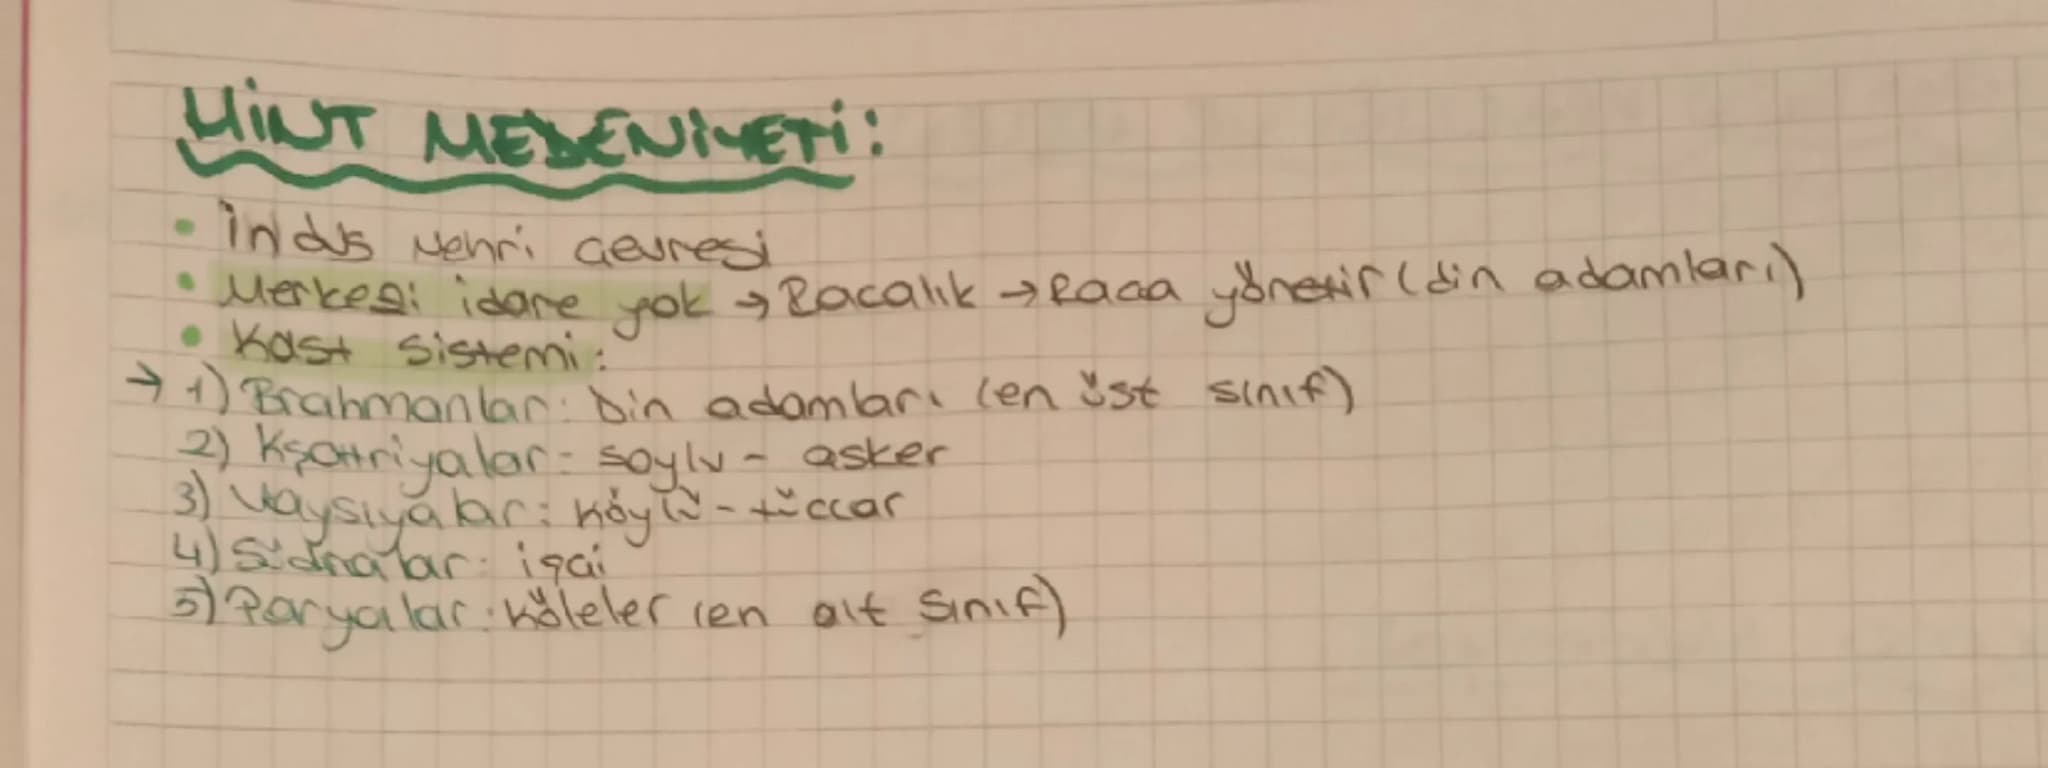 HİNT MEDENİYETİ:
• İndus Nehri çevresi
• Merkezi idare yok → Racalık → Raca yönetir (din adamları)
• Kast sistemi:
→ 1) Brahmanlar: Din adamları (en üst sınıf)
2) Kşattriyalar: soylu - asker
3) Vaysıyalar: köylü - tüccar
4) Südralar: işçi
5) Paryalar: köleler (en alt sınıf)